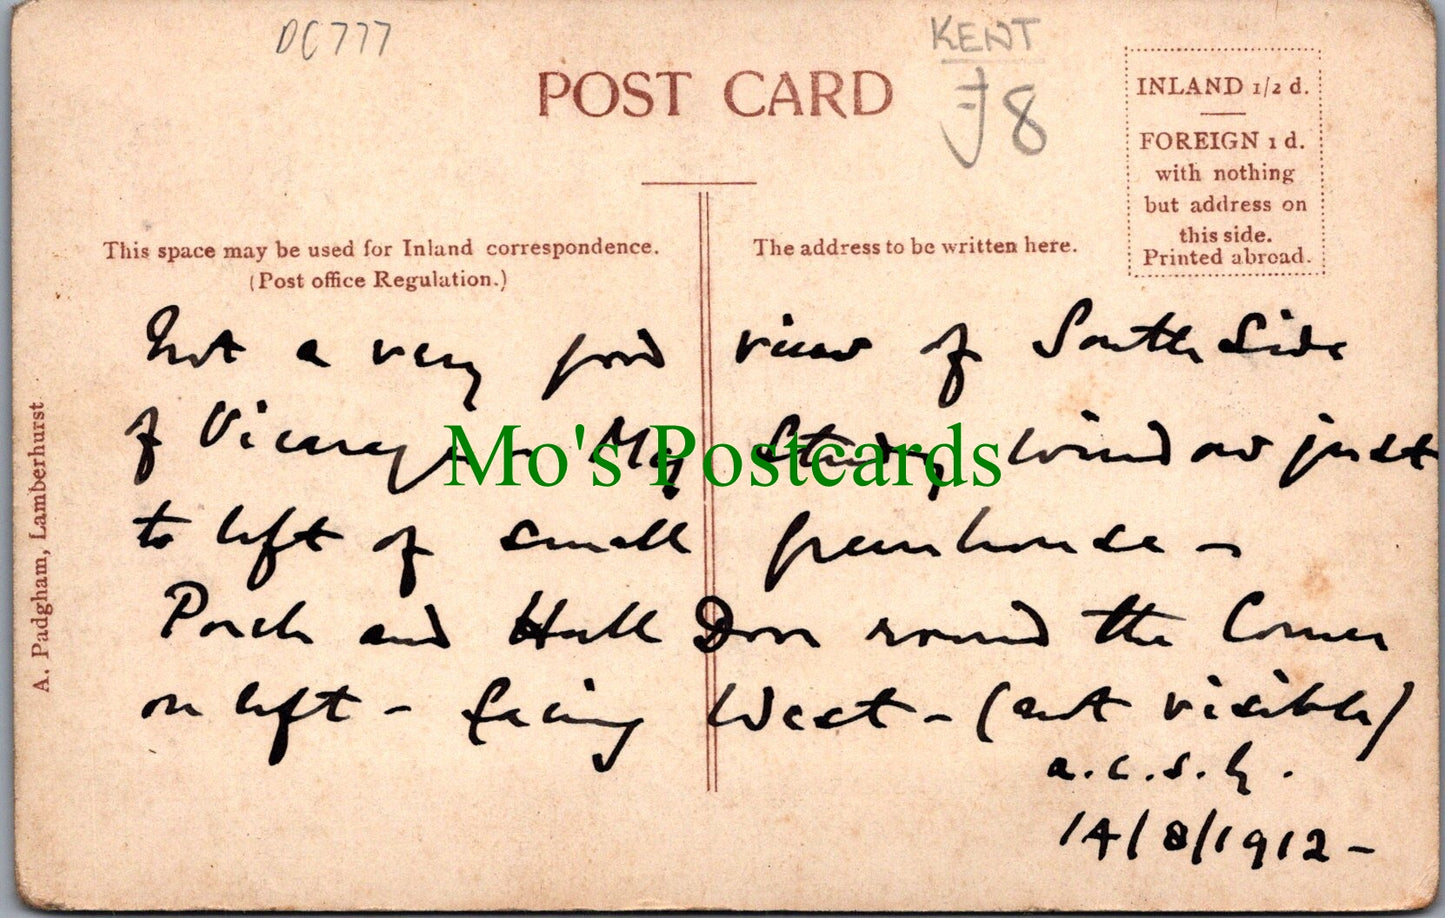 DC777
KENT
£8
POST CARD
INLAND 1/2 d.
FOREIGN 1 d.
with nothing
but address on
this side.
Printed abroad.
This space may be used for Inland correspondence.
(Post office Regulation.)
The address to be written here.
Not a very good view of South Side
of Vicarage - My Study window just
to left of small greenhouse -
Porch and Hall Door round the Corner
on left - facing West - (not visible)
14/8/1912 -
A. Padgham, Lamberhurst
Mo's Postcards